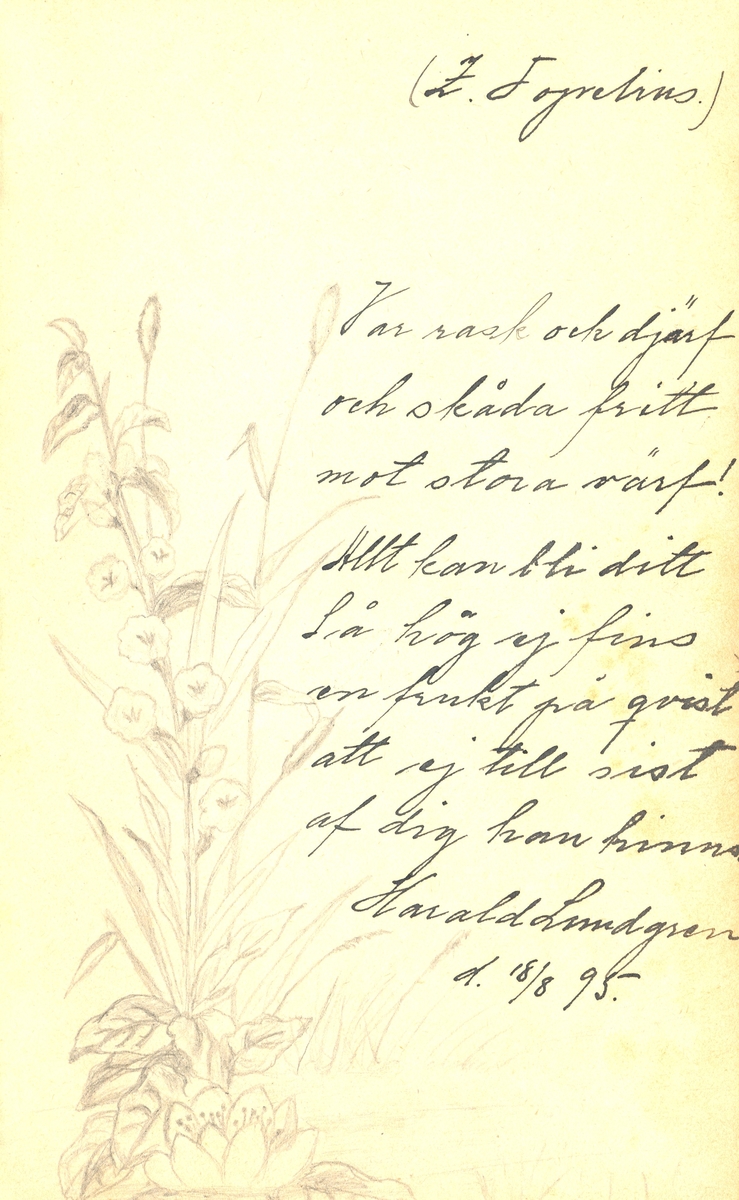 (Z. Togrelius.)
Var rask och djärf
och skåda fritt
mot stora värf!
Allt kan bli ditt
Så hög ej fins
en frukt på qvist
att ej till sist
af dig han hinns
Harald Lundgren
d. 18/8 95.